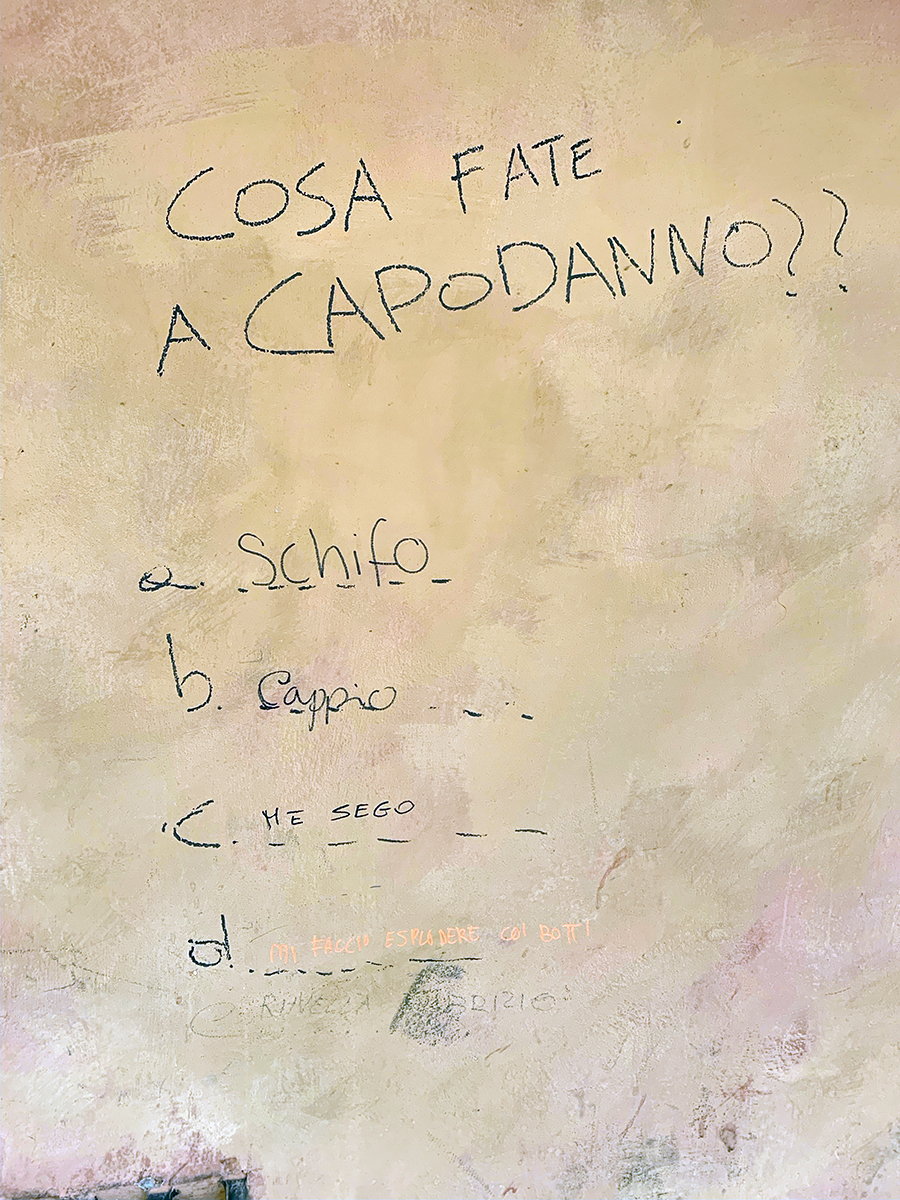 COSA FATE
A CAPODANNO??
a. Schifo
b. Cappio
c. ME SEGO
d. MI FACCIO ESPLODERE COI BOTTI
e.